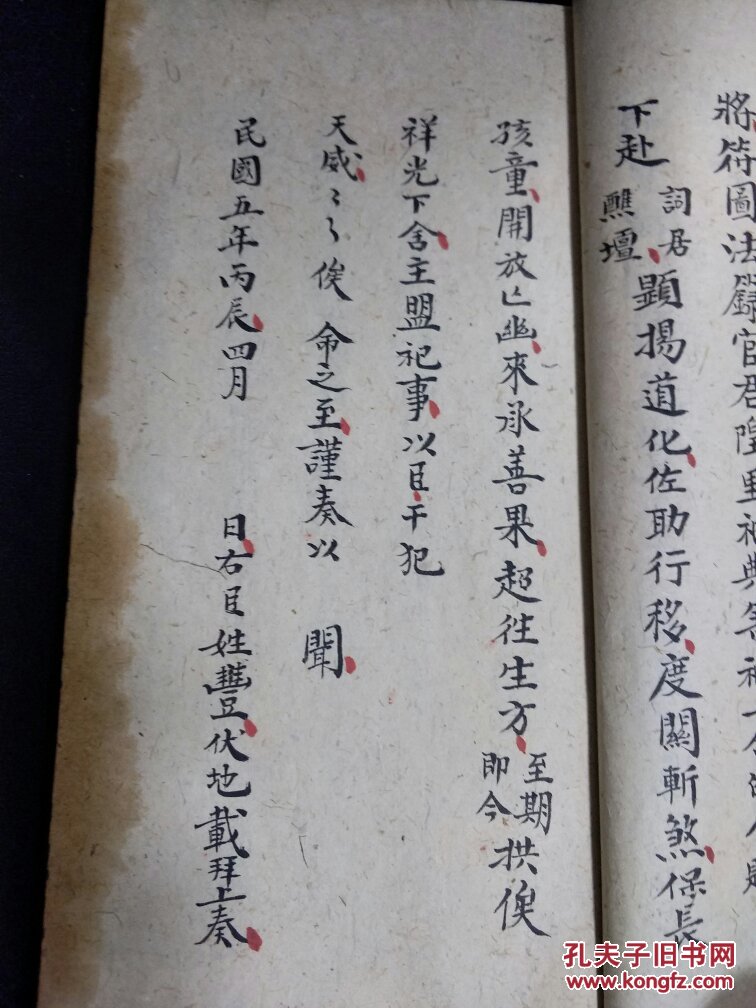 將符圖法籙官君隍里社典
下赴 詞居 醮壇 顯揚道化佐助行移度關斬煞保長
孩童開放亡幽來承善果超往生方 至期 即今 拱俟
祥光下舍主盟祀事以臣干犯
天威〻〻俟命之至謹奏以 聞
民國五年丙辰四月 日右臣姓豐伏地載拜上奏
孔夫子旧书网
www.kongfz.com